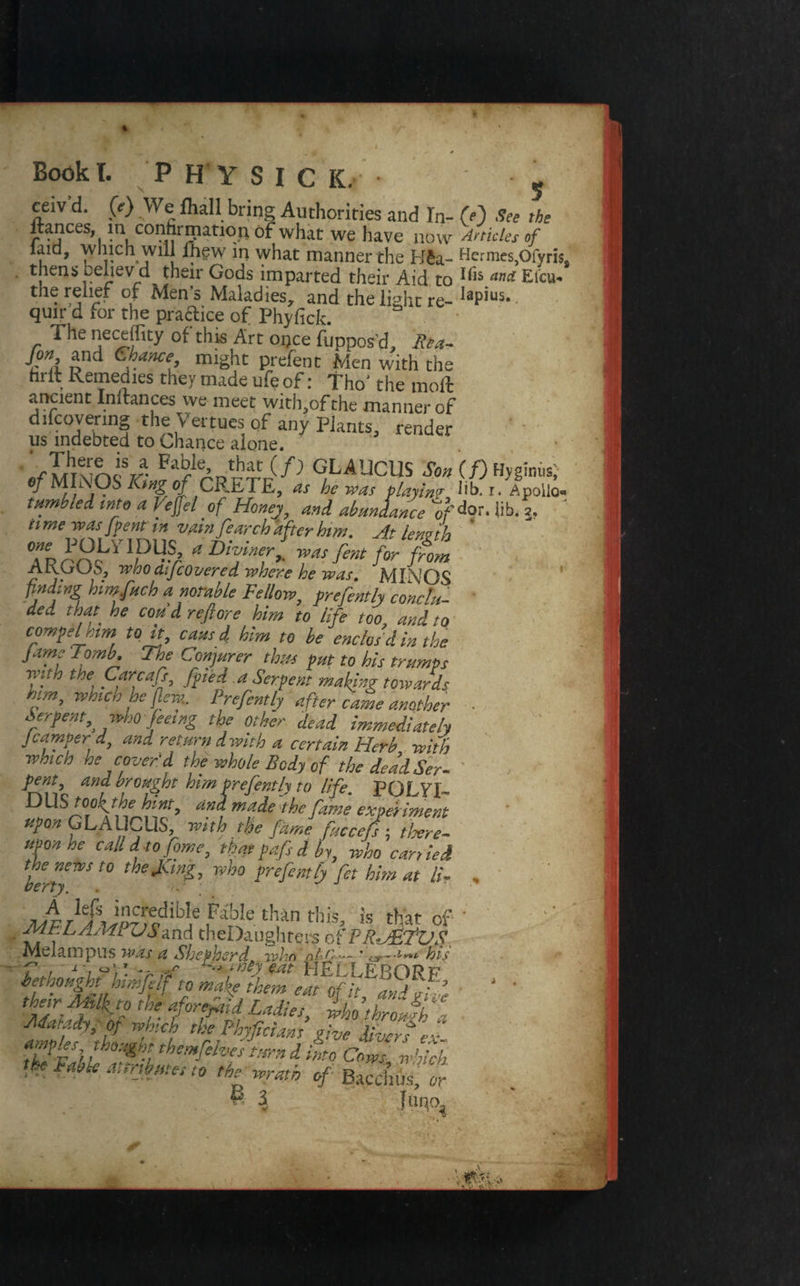 Book I. PHYSICK. 5
ceiv'd. (e) We ſhall bring Authorities and In- (e) See the
ſtances, in confirmation of what we have now Articles of
ſaid, which will ſhew in what manner the Hea- Hermes,Oſyris,
thens believ'd their Gods imparted their Aid to Iſis and Eſcu-
the relief of Men's Maladies, and the light re- lapius.
quir'd for the practice of Phyſick.
The neceſſity of this Art once ſuppos'd, Rea-
ſon, and Chance, might preſent Men with the
firſt Remedies they made uſe of: Tho' the moſt
ancient Inſtances we meet with,of the manner of
diſcovering the Vertues of any Plants, render
us indebted to Chance alone.
There is a Fable, that (f) GLAUCUS Son (f) Hyginus,
of MINOS King of CRETE, as he was playing, lib. 1. Apollo-
tumbled into a Veſſel of Honey, and abundance of dor. lib. 3,
time was ſpent in vain ſearch after him. At length
one POLYIDUS, a Diviner, was ſent for from
ARGOS, who diſcovered where he was. MINOS
finding him ſuch a notable Fellow, preſently conclu-
ded that he cou'd reſtore him to life too, and to
compel him to it, caus'd him to be enclos'd in the
ſame Tomb. The Conjurer thus put to his trumps
with the Carcaſs, ſpied a Serpent making towards
him, which he ſlew. Preſently after came another
Serpent, who ſeeing the other dead immediately
ſcamper'd, and return'd with a certain Herb, with
which he cover'd the whole Body of the dead Ser-
pent, and brought him preſently to life. POLYI-
DUS took the hint, and made the ſame experiment
upon GLAUCUS, with the ſame ſucceſs; there-
upon he call'd to ſome, that paſs'd by, who carried
the news to the King, who preſently ſet him at li-
berty.
A leſs incredible Fable than this, is that of
MELAMPUS and the Daughters of PRÆTUS.
Melampus was a Shepherd, who his
they eat HELLEBORE,
bethought himſelf to make them eat of it, and give
their Milk to the aforeſaid Ladies, who through a
Malady, of which the Phyſicians give divers ex-
amples, thought themſelves turn'd into Cows, which
the Fable attributes to the wrath of Bacchus, or
B 3 Juno,